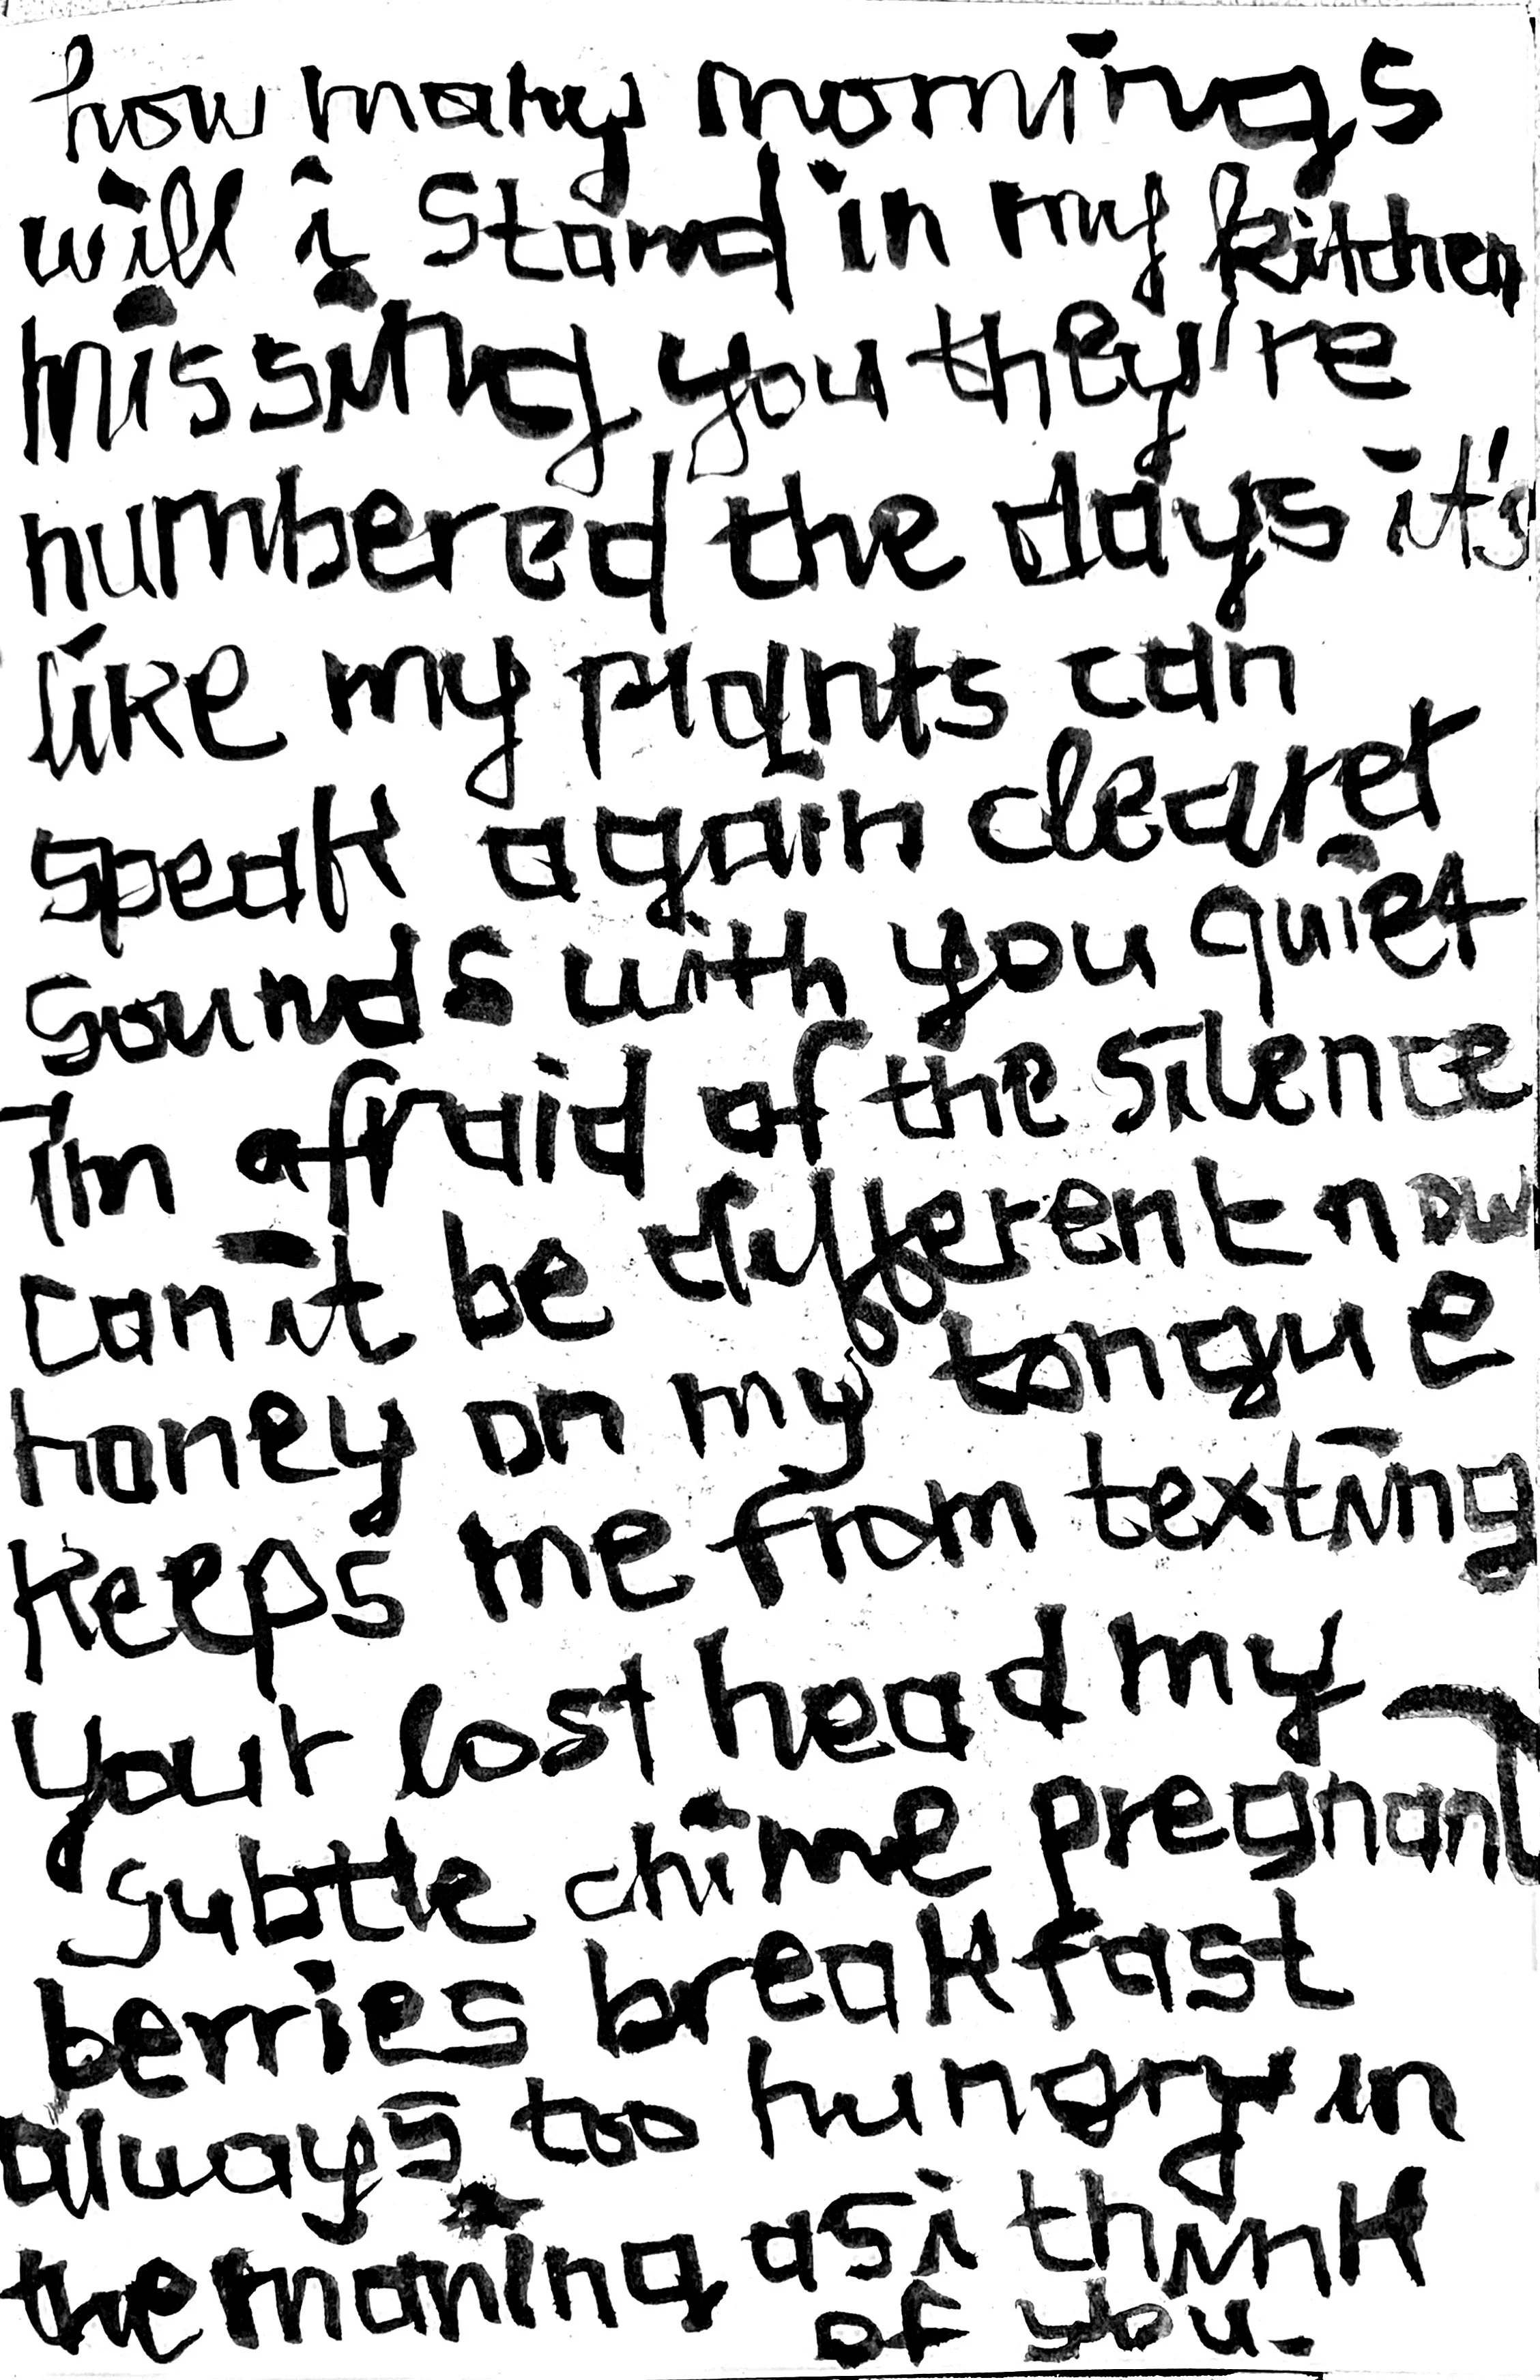 how many mornings
will i stand in my kitchen
missing you they're
numbered the days it's
like my plants can
speak again clearer
sounds with you quiet
I'm afraid of the silence
can it be different now
honey on my tongue
keeps me from texting
your lost head my
subtle chime pregnant
berries breakfast
always too hungry in
the morning as i think
of you.